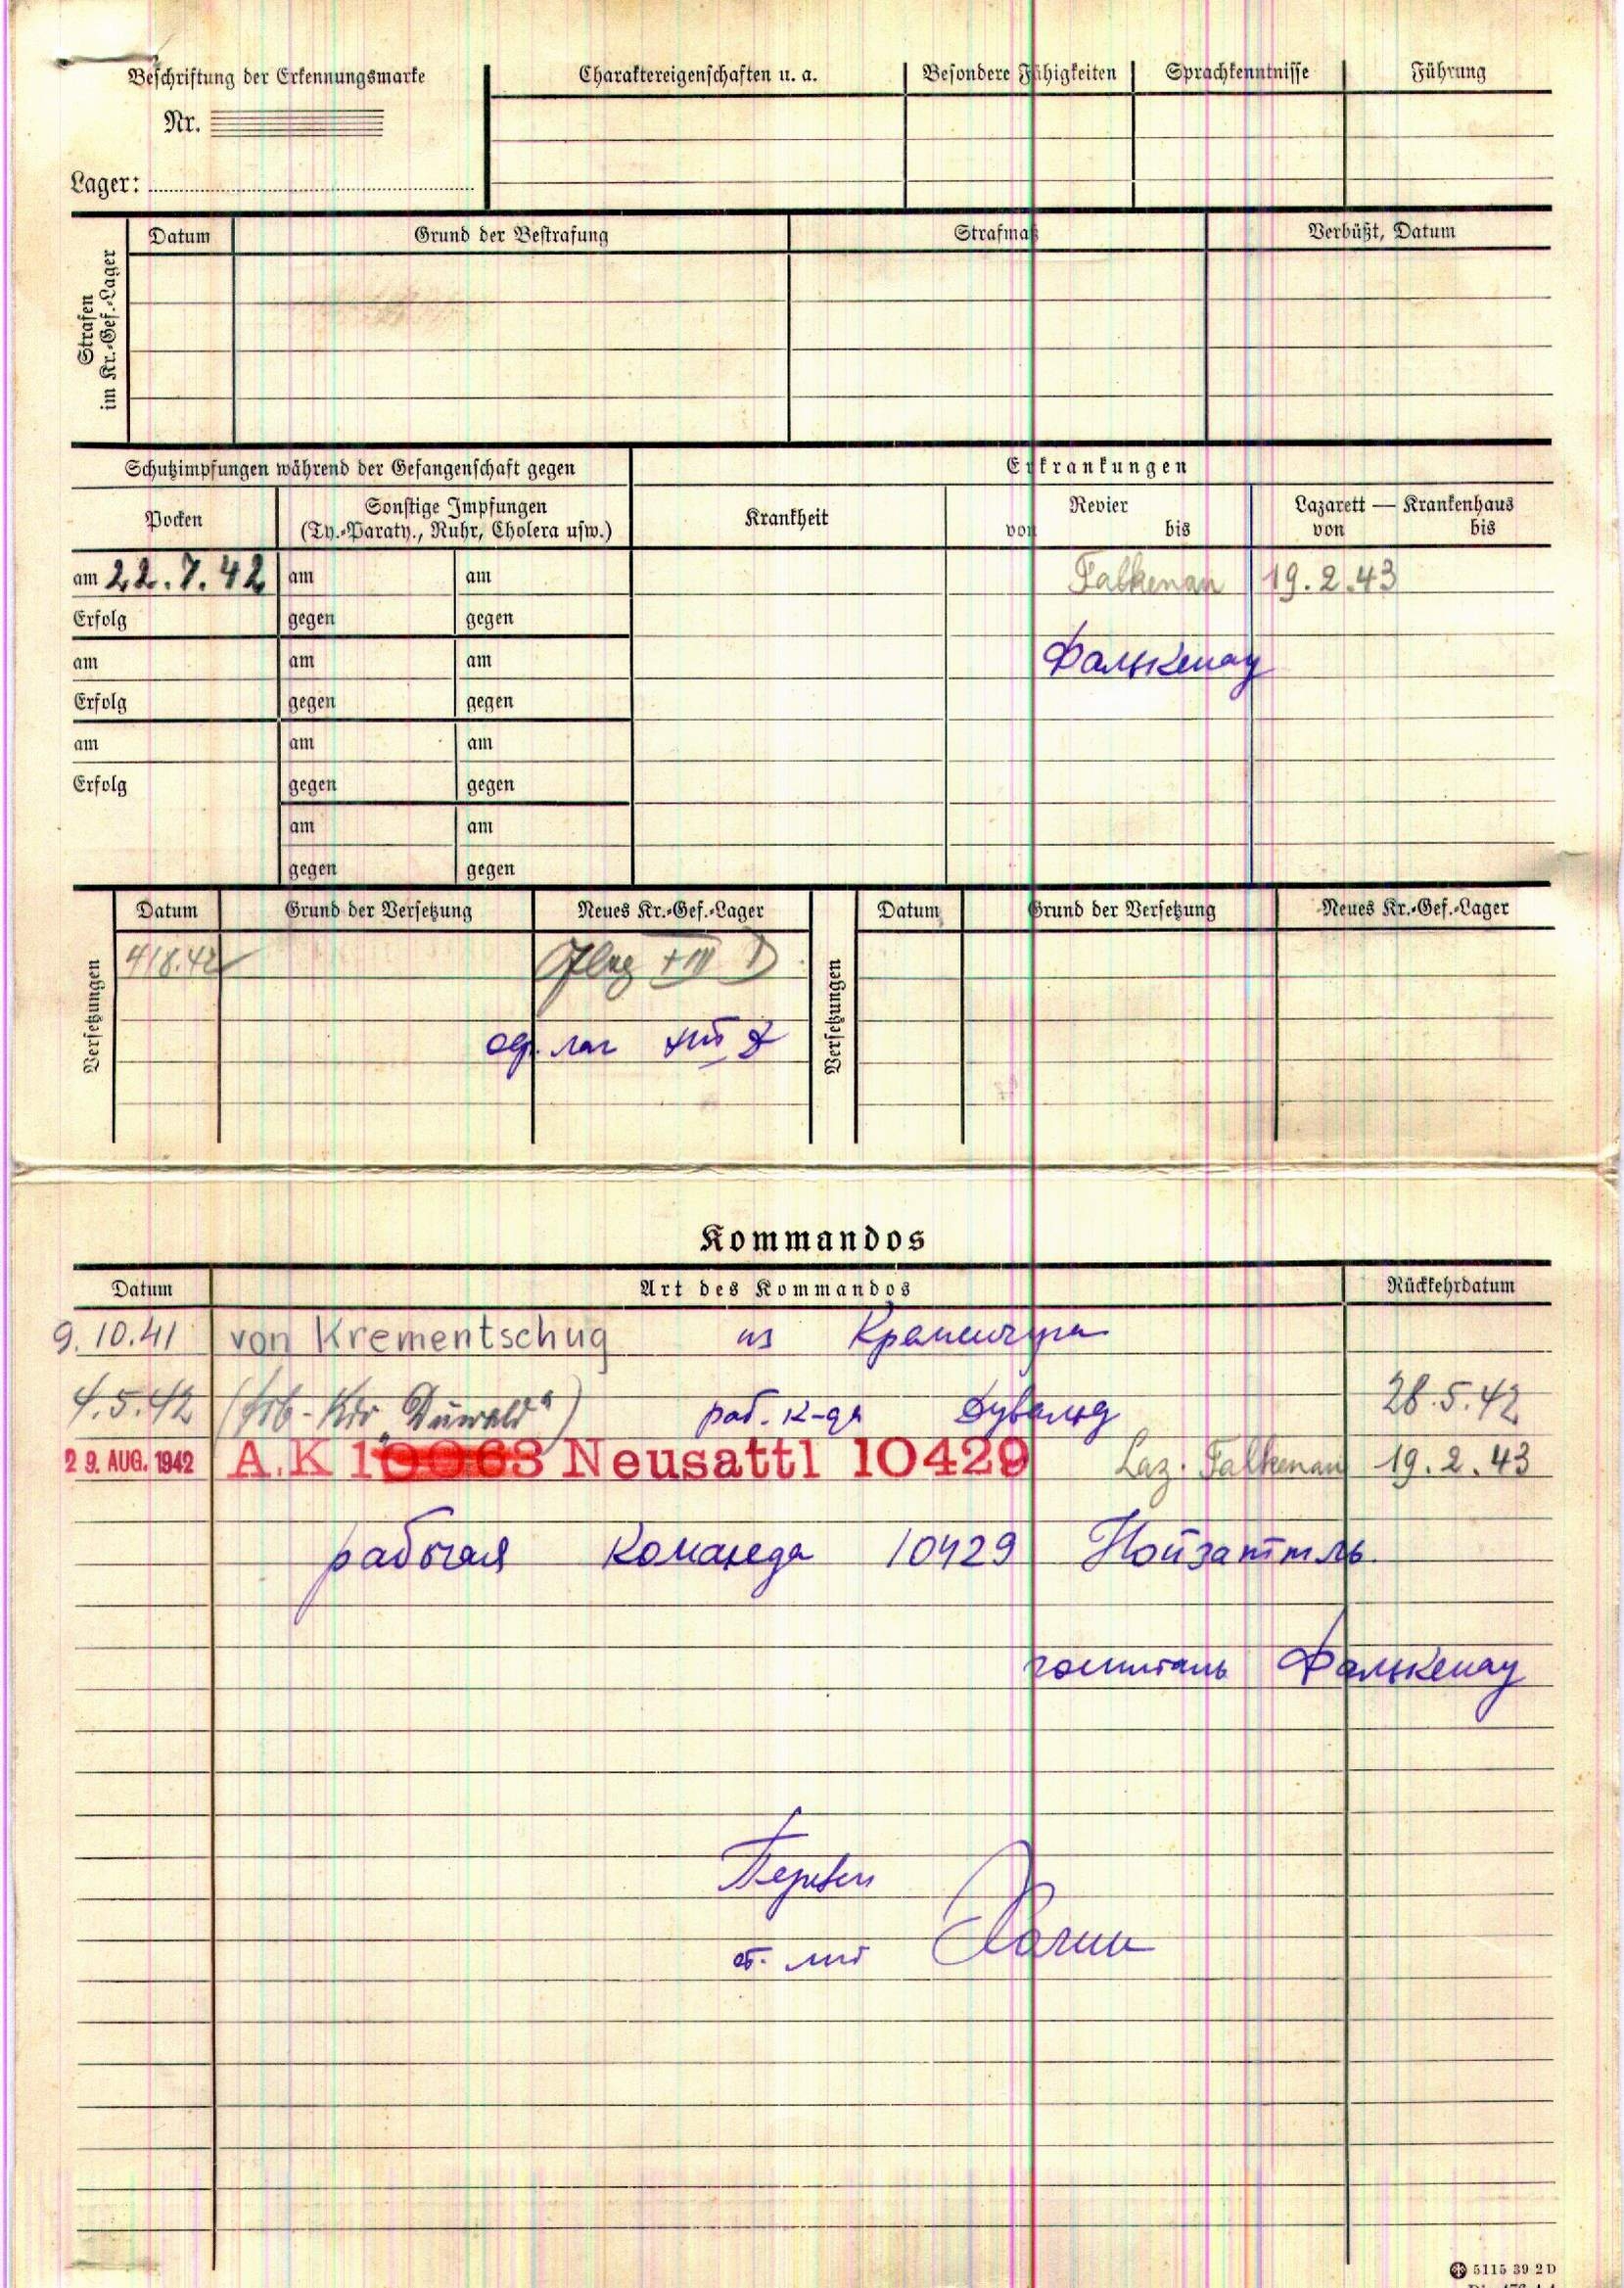 Beschriftung der Erkennungsmarke
Nr.
Lager:
Charaktereigenschaften u. a.
Besondere Fähigkeiten
Sprachkenntnisse
Führung
Strafen im Kr.-Gef.-Lager
Datum
Grund der Bestrafung
Strafmaß
Verbüßt, Datum
Schutzimpfungen während der Gefangenschaft gegen
Erkrankungen
Pocken
Sonstige Impfungen
(Ty.-Paraty., Ruhr, Cholera usw.)
Krankheit
Revier
von bis
Lazarett — Krankenhaus
von bis
am 22.7.42 am am
Falkenau 19.2.43
Erfolg gegen gegen
am am am
Фалькенау
Erfolg gegen gegen
am am am
Erfolg gegen gegen
am am
gegen gegen
Versetzungen
Datum Grund der Versetzung Neues Kr.-Gef.-Lager
Versetzungen
Datum Grund der Versetzung Neues Kr.-Gef.-Lager
4/8.42 Oflag XIII D
оф. лаг XIII Д
Kommandos
Datum Art des Kommandos Rückkehrdatum
9.10.41 von Krementschug из Кременчуга
4.5.42 (Arb-Kdo „Düwald“) раб. к-да Дувальд 28.5.42
29. AUG. 1942 A.K 10063 Neusattl 10429 Laz. Falkenau 19.2.43
рабочая команда 10429 Нойзаттль
госпиталь Фалькенау
Перевел
ст. л-т
5115 39 2 D